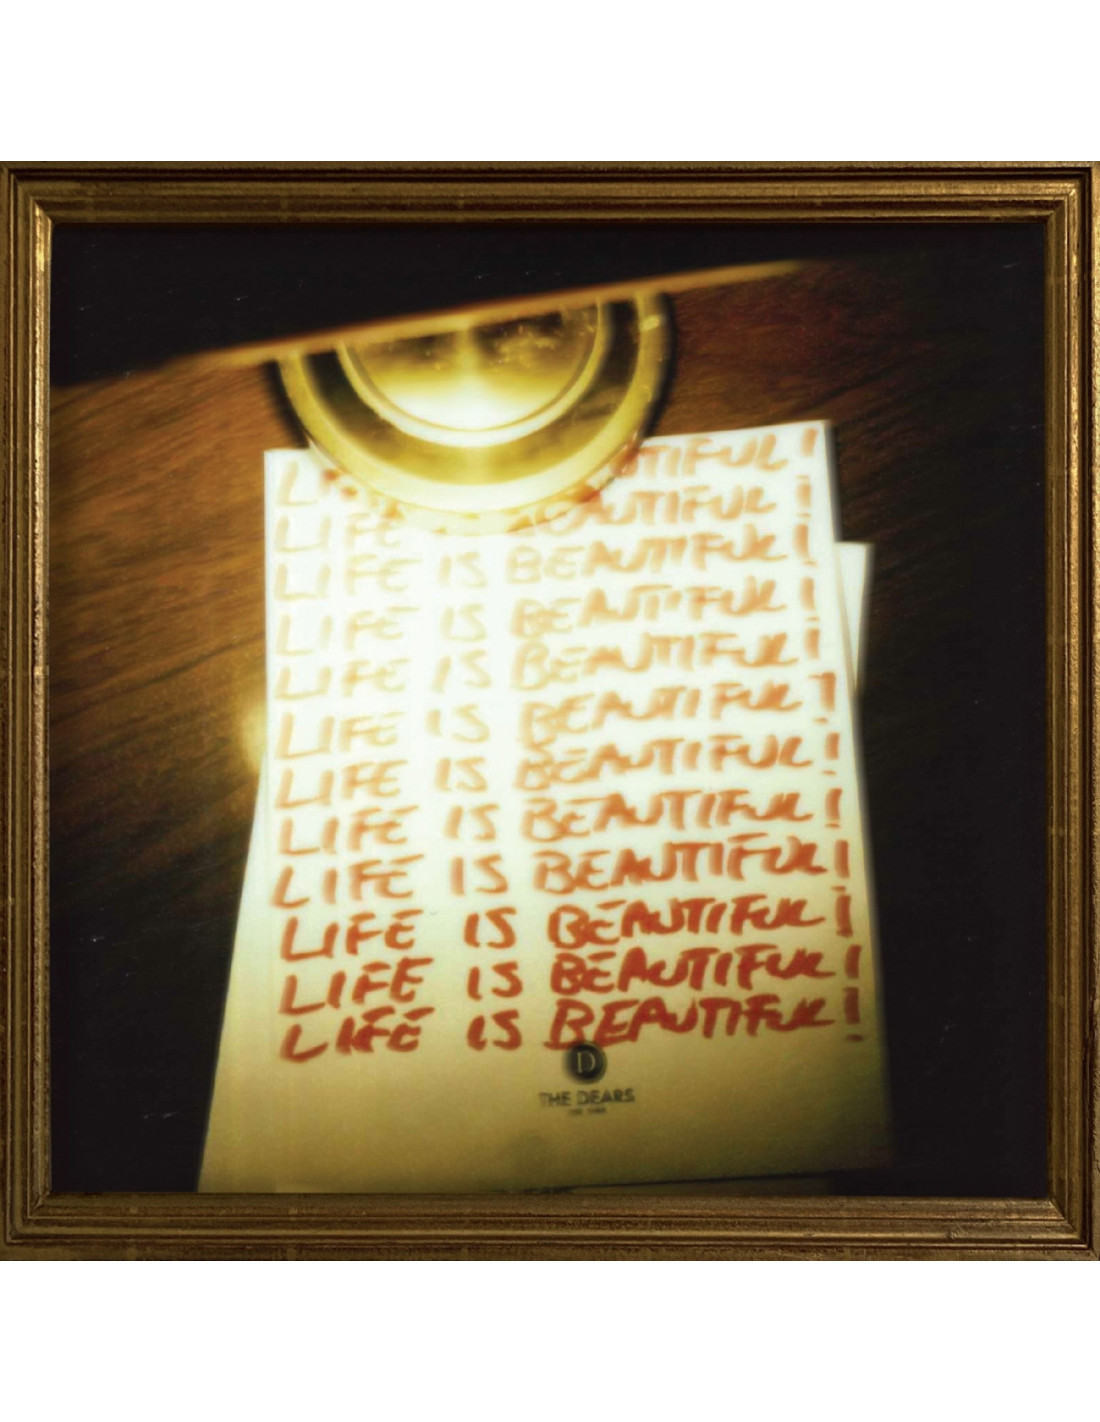 LI UTIFUL!
LIFE EAUTIFUL!
LIFE IS BEAUTIFUL!
LIFE IS BEAUTIFUL!
LIFE IS BEAUTIFUL!
LIFE IS BEAUTIFUL!
LIFE IS BEAUTIFUL!
LIFE IS BEAUTIFUL!
LIFE IS BEAUTIFUL!
LIFE IS BEAUTIFUL!
LIFE IS BEAUTIFUL!
LIFE IS BEAUTIFUL!
D
THE DEARS